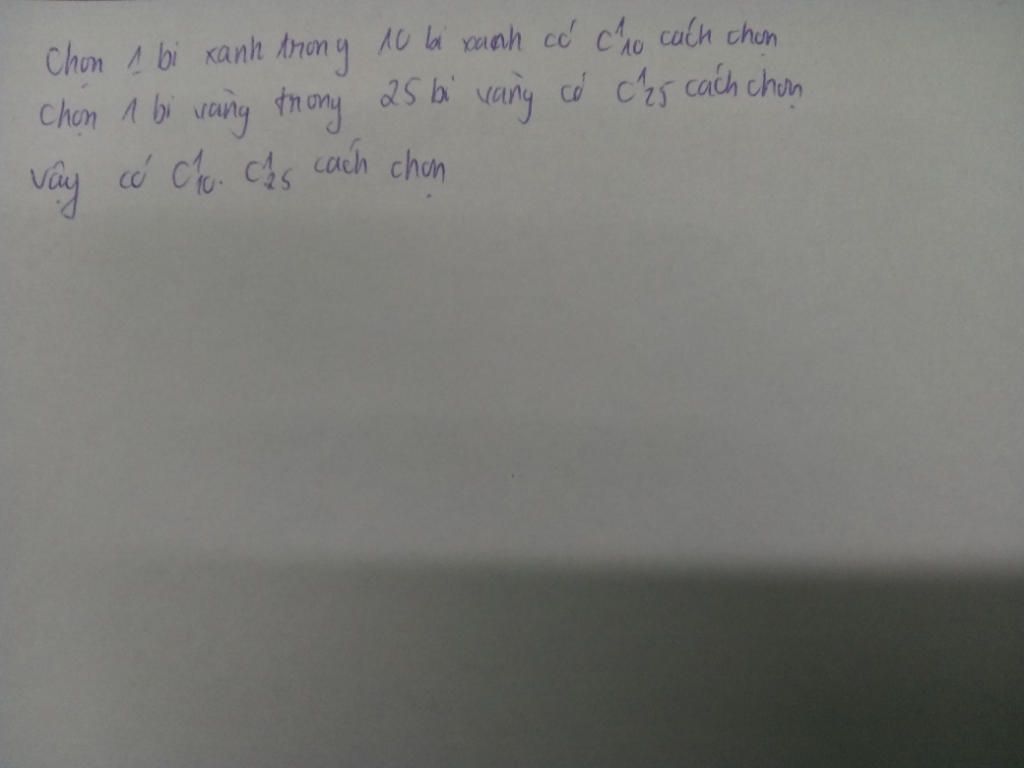 Chọn 1 bi xanh trong 10 bi xanh có C¹₁₀ cách chọn
Chọn 1 bi vàng trong 25 bi vàng có C¹₂₅ cách chọn
vậy có C¹₁₀. C¹₂₅ cách chọn